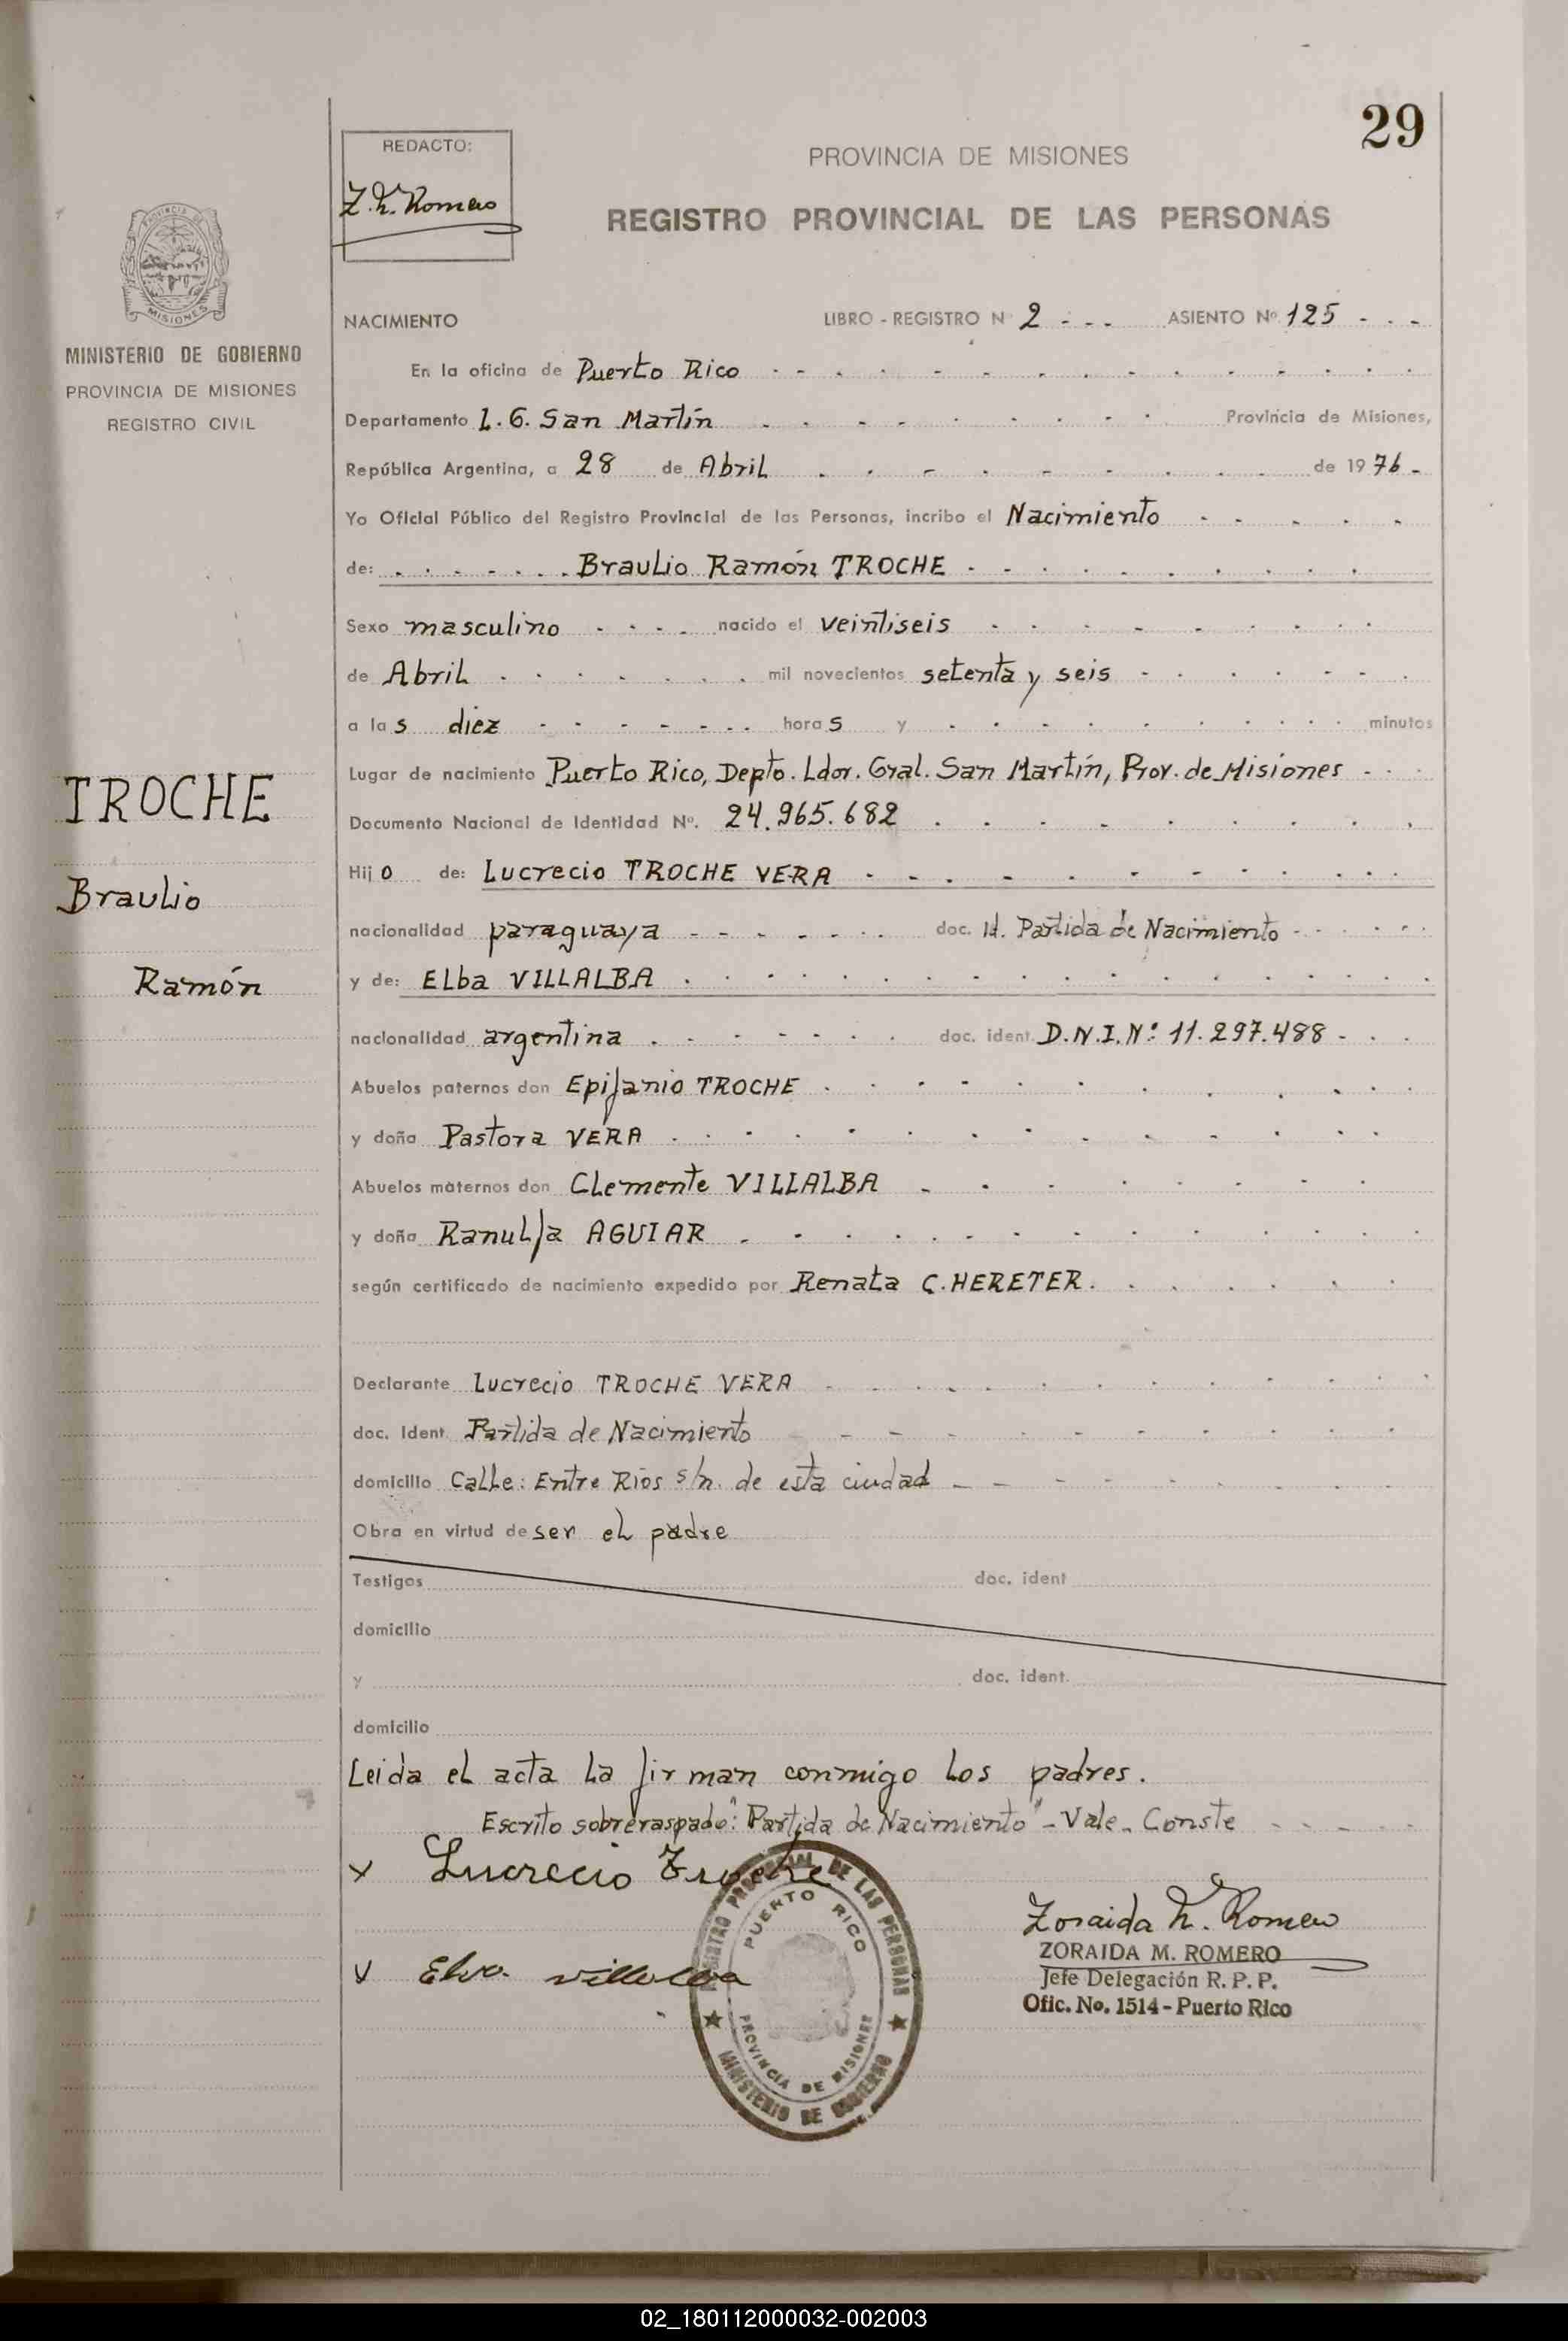 29
REDACTO:
Z. M. Romero
PROVINCIA DE MISIONES
REGISTRO PROVINCIAL DE LAS PERSONAS
MISIONES
MINISTERIO DE GOBIERNO
PROVINCIA DE MISIONES
REGISTRO CIVIL
TROCHE
Braulio
Ramón
NACIMIENTO LIBRO - REGISTRO Nº 2 - - - ASIENTO Nº 125 - - -
En la oficina de Puerto Rico
Departamento L. G. San Martín Provincia de Misiones,
República Argentina, a 28 de Abril de 1976 -
Yo Oficial Público del Registro Provincial de las Personas, incribo el Nacimiento
de: Braulio Ramón TROCHE
Sexo masculino nacido el veintiseis
de Abril mil novecientos setenta y seis
a las diez horas y minutos
Lugar de nacimiento Puerto Rico, Depto. Ldor. Gral. San Martín, Prov. de Misiones
Documento Nacional de Identidad Nº. 24.965.682
Hijo de: Lucrecio TROCHE VERA
nacionalidad paraguaya doc. Id. Partida de Nacimiento
y de: Elba VILLALBA
nacionalidad argentina doc. ident. D.N.I. Nº: 11.297.488
Abuelos paternos don Epifanio TROCHE
y doña Pastora VERA
Abuelos maternos don Clemente VILLALBA
y doña Ranulfa AGUIAR
según certificado de nacimiento expedido por Renata C. HERETER.
Declarante Lucrecio TROCHE VERA
doc. Ident. Partida de Nacimiento
domicilio Calle: Entre Ríos s/n. de esta ciudad
Obra en virtud de ser el padre
Testigos doc. ident
domicilio
y doc. ident.
domicilio
Leida el acta la firman conmigo los padres.
Escrito sobreraspado: "Partida de Nacimiento" - Vale - Conste
x Lucrecio Troche
x Elva villalba
REGISTRO PROVINCIAL DE LAS PERSONAS
PUERTO RICO
PROVINCIA DE MISIONES
MINISTERIO DE GOBIERNO
Zoraida M. Romero
ZORAIDA M. ROMERO
Jefe Delegación R. P. P.
Ofic. No. 1514 - Puerto Rico
02_180112000032-002003